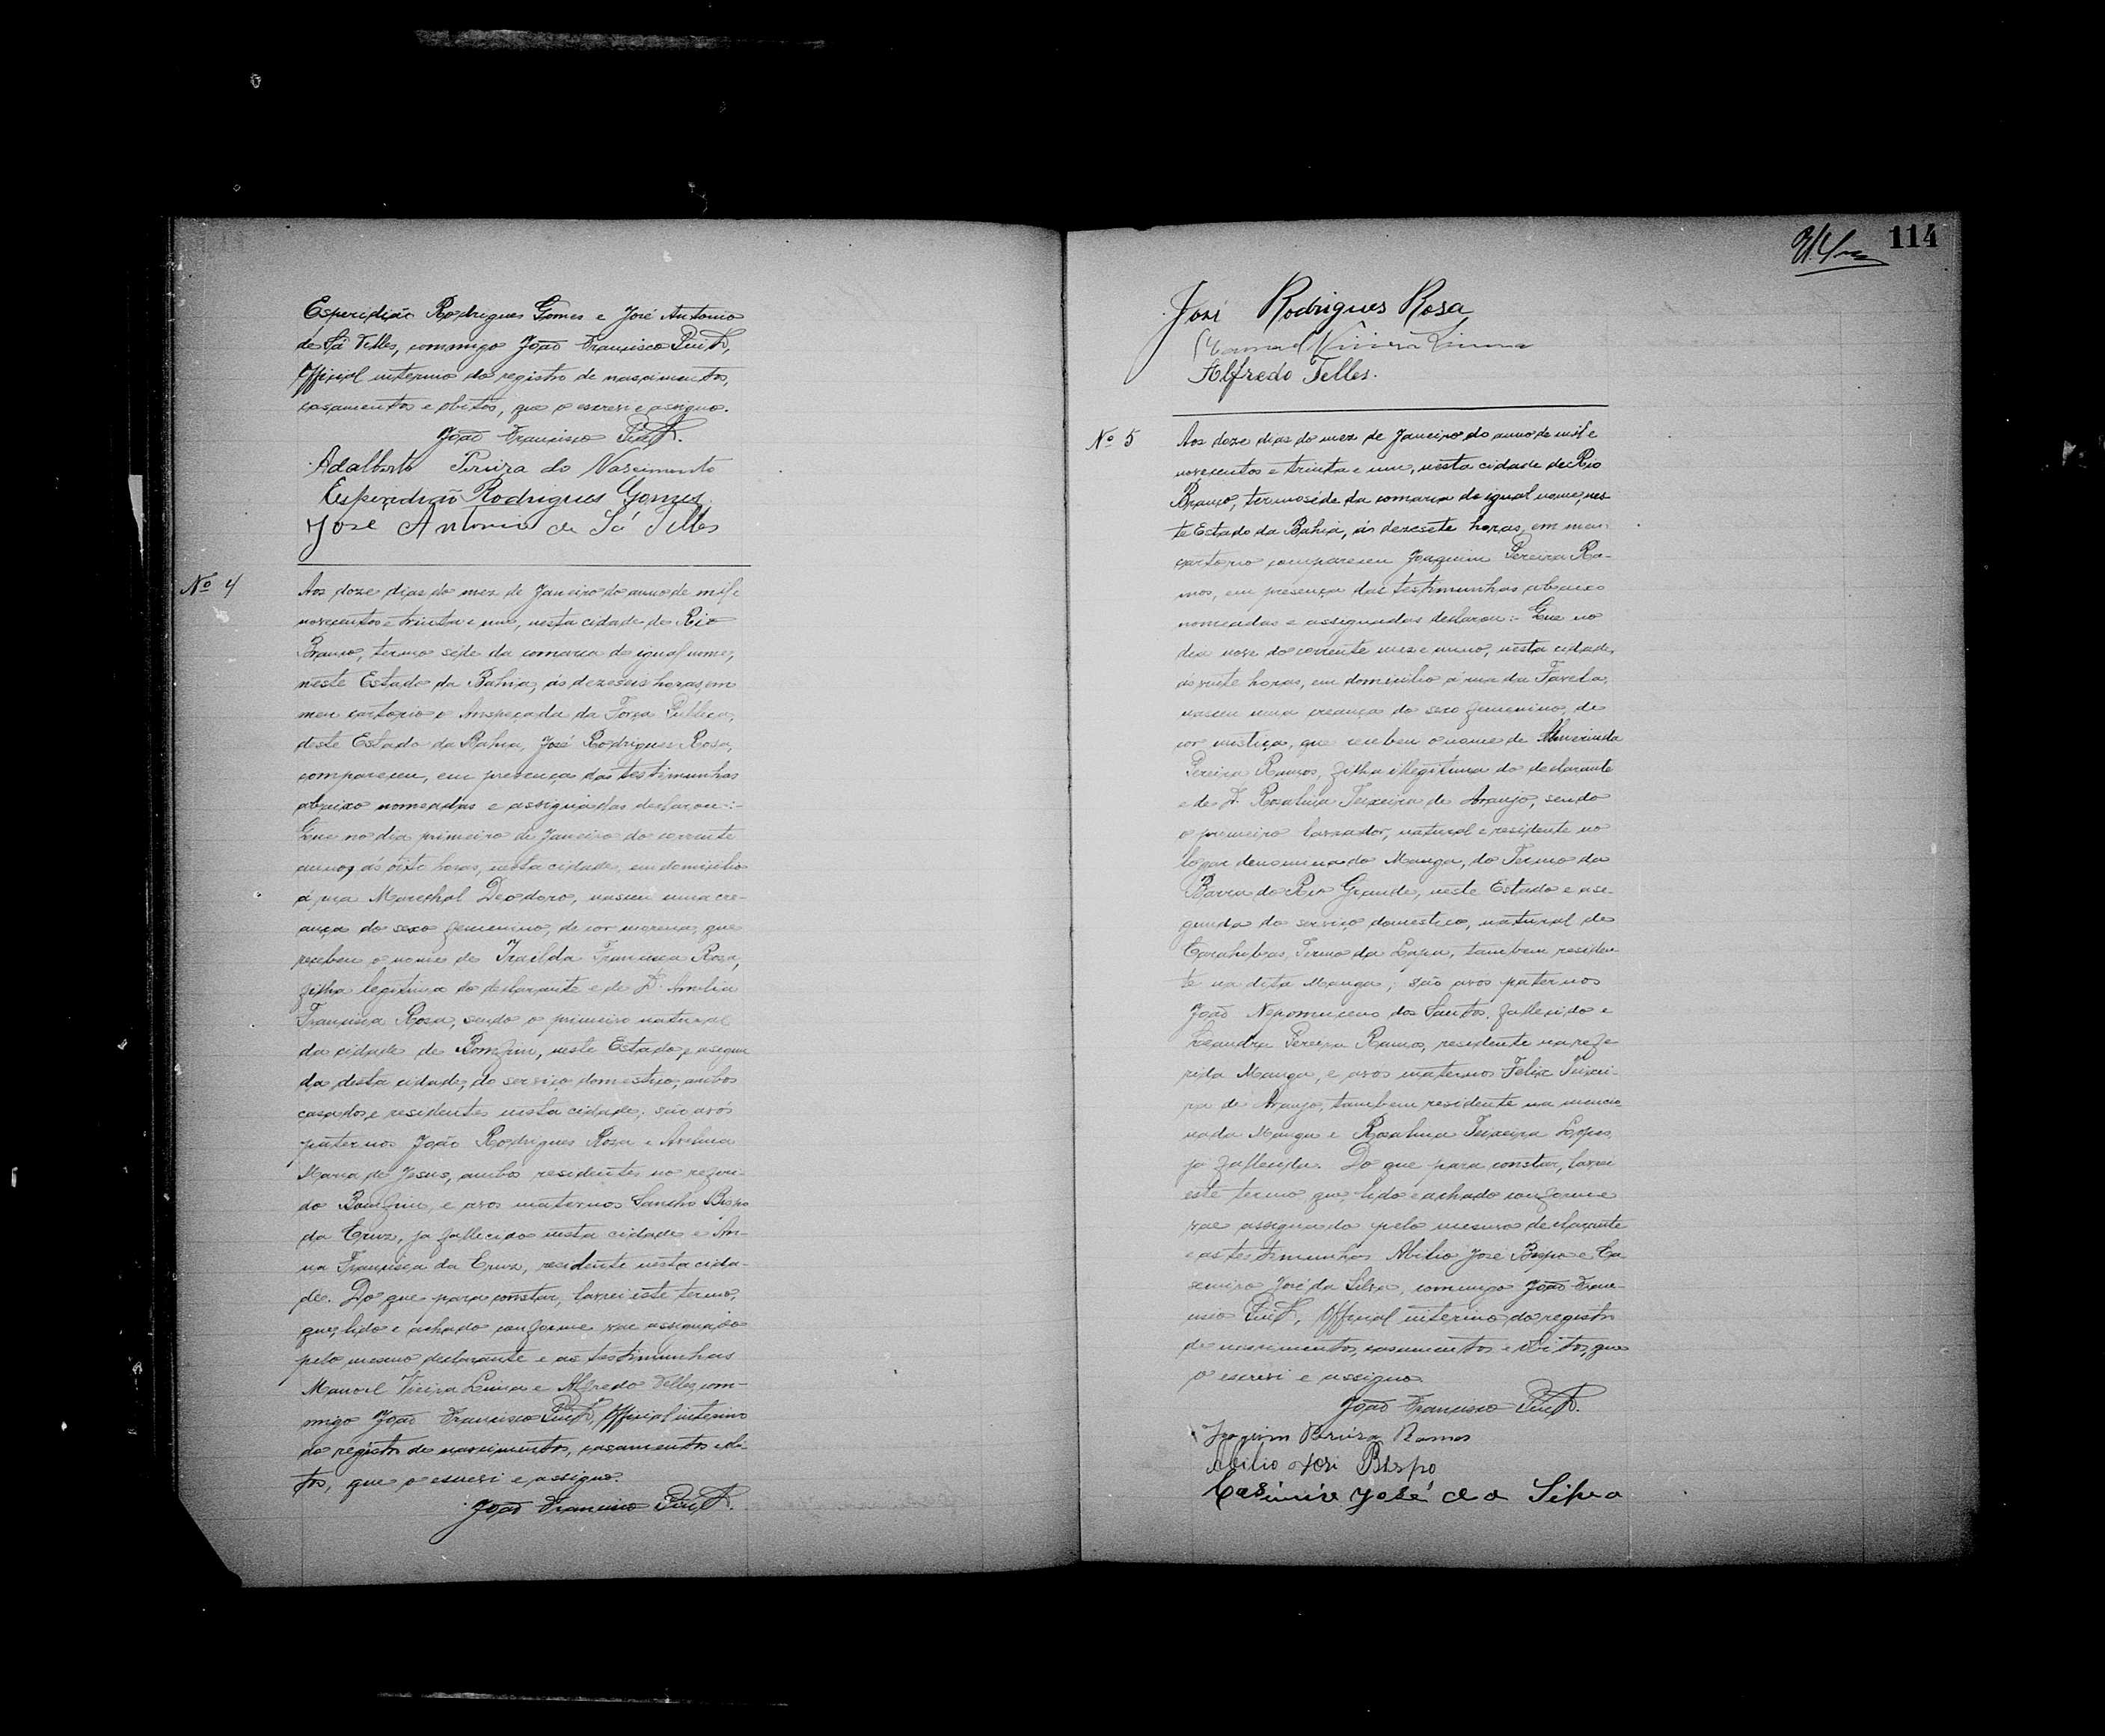 Esperidião Rodrigues Gomes e José Antonio
de Sá Telles, commigo João Francisco
Official interino do registro de nascimentos,
casamentos e obitos, que o escrevi e assigno.
João Francisco
Adalberto Pereira do Nascimento
Esperidião Rodrigues Gomes
José Antonio de Sá Telles
Nº 4
Aos doze dias do mez de Janeiro do anno de mil e
novecentos e trinta e um, nesta cidade de Rio
Branco, termo séde da comarca de igual nome,
neste Estado da Bahia, ás dezeseis horas, em
meu cartorio o Anspeçada da Força Publica,
deste Estado da Bahia, José Rodrigues Rosa,
compareceu, em presença das testimunhas
abaixo nomeadas e assignadas declarou:-
Que no dia primeiro de Janeiro do corrente
anno, ás oito horas, nesta cidade, em domicilio
á rua Marechal Deodoro, nasceu uma cre-
ança do sexo femenino, de cor morena, que
recebeu o nome de Francisca Rosa,
filha legitima do declarante e de D. Amelia
Francisca Rosa, sendo o primeiro natural
da cidade de Bomfim, neste Estado, e a segun
da desta cidade, do serviço domestico, ambos
casados e residentes nesta cidade; são avós
paternos João Rodrigues Rosa e Avelina
Maria de Jesus, ambos residentes no referi-
do Bomfim, e avos maternos Sancho Bispo
da Cruz, já fallecido nesta cidade e An-
na Francisca da Cruz, residente nesta cida-
de. Do que para constar, lavrei este termo,
que, lido e achado conforme vae assignado
pelo mesmo declarante e as testimunhas
Manoel Vieira Lima e Alfredo Telles, com-
migo João Francisco Official interino
do registro de nascimentos, casamentos e obi-
tos, que o escrevi e assigno.
João Francisco
114
José Rodrigues Rosa
Manoel Vieira Lima
Alfredo Telles.
Nº 5
Aos doze dias do mez de Janeiro do anno de mil e
novecentos e trinta e um, nesta cidade de Rio
Branco, termo séde da comarca de igual nome, nes
te Estado da Bahia, ás dezesete horas, em meu
cartorio compareceu Joaquim Pereira Ra-
mos, em presença das testimunhas abaixo
nomeadas e assignadas declarou:- Que no
dia nove do corrente mez e anno, nesta cidade,
ás vinte horas, em domicilio á rua da Favela,
nasceu uma creança do sexo femenino, de
cor mestiça, que recebeu o nome de Almerinda
Pereira Ramos, filha illegitima do declarante
e de D. Rosalina Teixeira de Araujo, sendo
o primeiro lavrador, natural e residente no
logar denominado Manga, do Termo da
Barra do Rio Grande, neste Estado e a se-
gunda do serviço domestico, natural de
Carahybas, Termo da Lapa, tambem residen-
te na dita Manga; são avos paternos
João Nepomuceno dos Santos, fallecido e
Leandra Pereira Ramos, residente na refe
rida Manga, e avos maternos Felix Teixei-
ra de Araujo, tambem residente na mencio-
nada Manga e Rosalina Teixeira Lopes,
já fallecida. Do que para constar, lavrei
este termo, que, lido e achado conforme
vae assignado pelo mesmo declarante
e as testimunhas Abilio José Bispo e Ca
semiro José da Silva, commigo João Fran-
cisco Official interino do registro
de nascimentos, casamentos e obitos, que
o escrevi e assigno.
João Francisco
Joaquim Pereira Ramos
Abilio José Bispo
Casimiro José da Silva